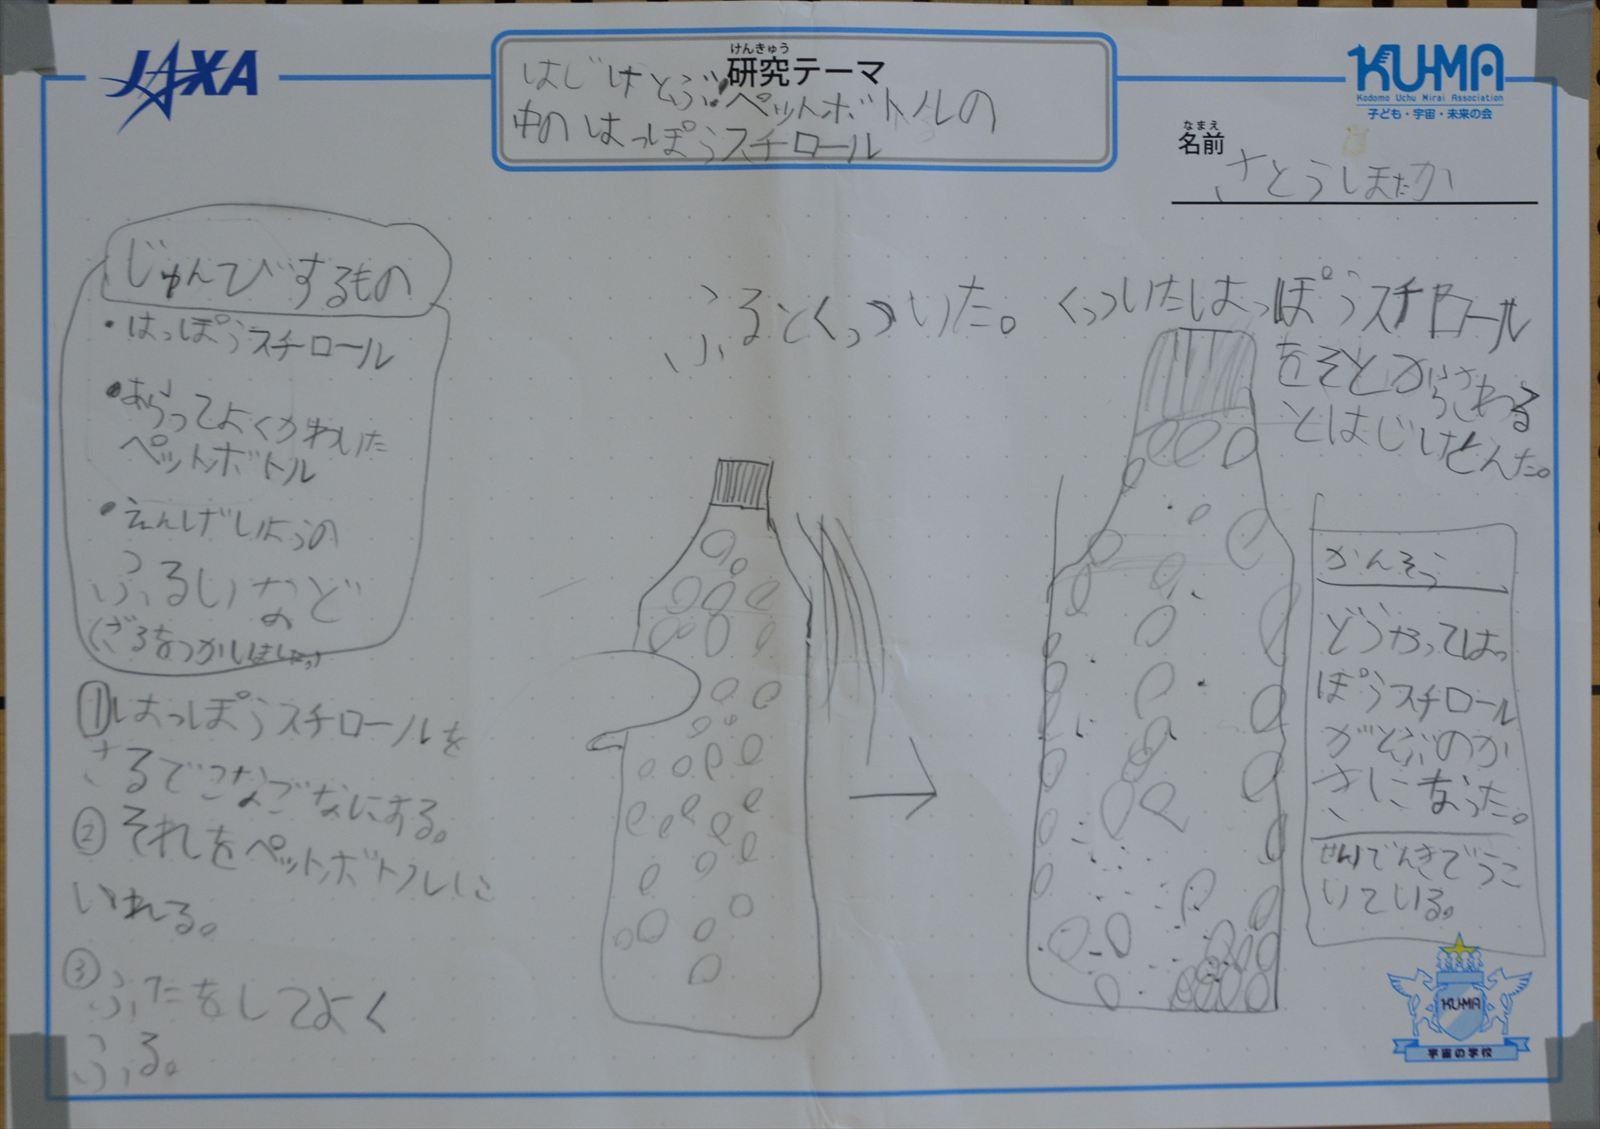 JAXA
けんきゅう
研究テーマ
はじけとぶペットボトルの
中のはっぽうスチロール
KUMA
Kodomo Uchu Mirai Association
子ども・宇宙・未来の会
なまえ
名前
さとうほたか
じゅんびするもの
・はっぽうスチロール
・あらってよくかわいた
ペットボトル
・えんげいようの
ふるいなど
(ざるをつかいました)
①はっぽうスチロールを
ざるでこなごなにする。
②それをペットボトルに
いれる。
③ふたをしてよく
ふる。
ふるとくっついた。
くっついたはっぽうスチロール
をそとからさわる
とはじけとんだ。
かんそう
どうやってはっ
ぽうスチロール
がとぶのか
きになった。
せいでんきでうご
いている。
KUMA
宇宙の学校